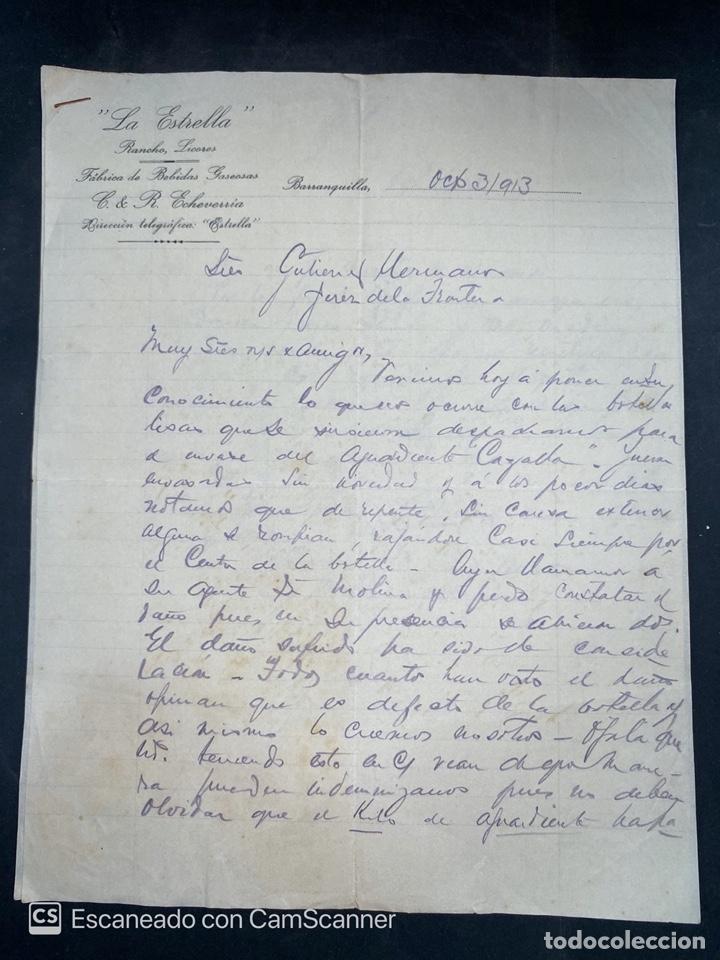 "La Estrella"
Rancho, Licores
Fábrica de Bebidas Gaseosas
C. & R. Echeverria
Dirección telegráfica: "Estrella"
Barranquilla, Oct 3/913
Sres Gutierrez Hermanos
Jerez de la Frontera
Muy Sres ntrs & amigos,
Venimos hoy á poner en su
Conocimiento lo que nos ocurre con las botellas
lisas que se sirvieron despacharnos para
envase del Aguardiente "Cazalla". Fueron
envasadas sin novedad y á los pocos dias
notamos que de repente, sin causa exterior
alguna se rompian, rajándose casi siempre por
el Centro de la botella - Ayer llamamos á
su agente Sr Molina y pudo constatar el
daño pues en su presencia se abrieron dos.
El daño sufrido ha sido de conside
ración - Todos cuantos han visto el daño
opinan que es defecto de la botella y
asi mismo lo creemos nosotros - Ojala que
Uds. teniendo esto en cta vean de que mane-
ra pueden indemnizarnos pues no deben
olvidar que el Kilo de aguardiente
CS Escaneado con CamScanner
todocoleccion